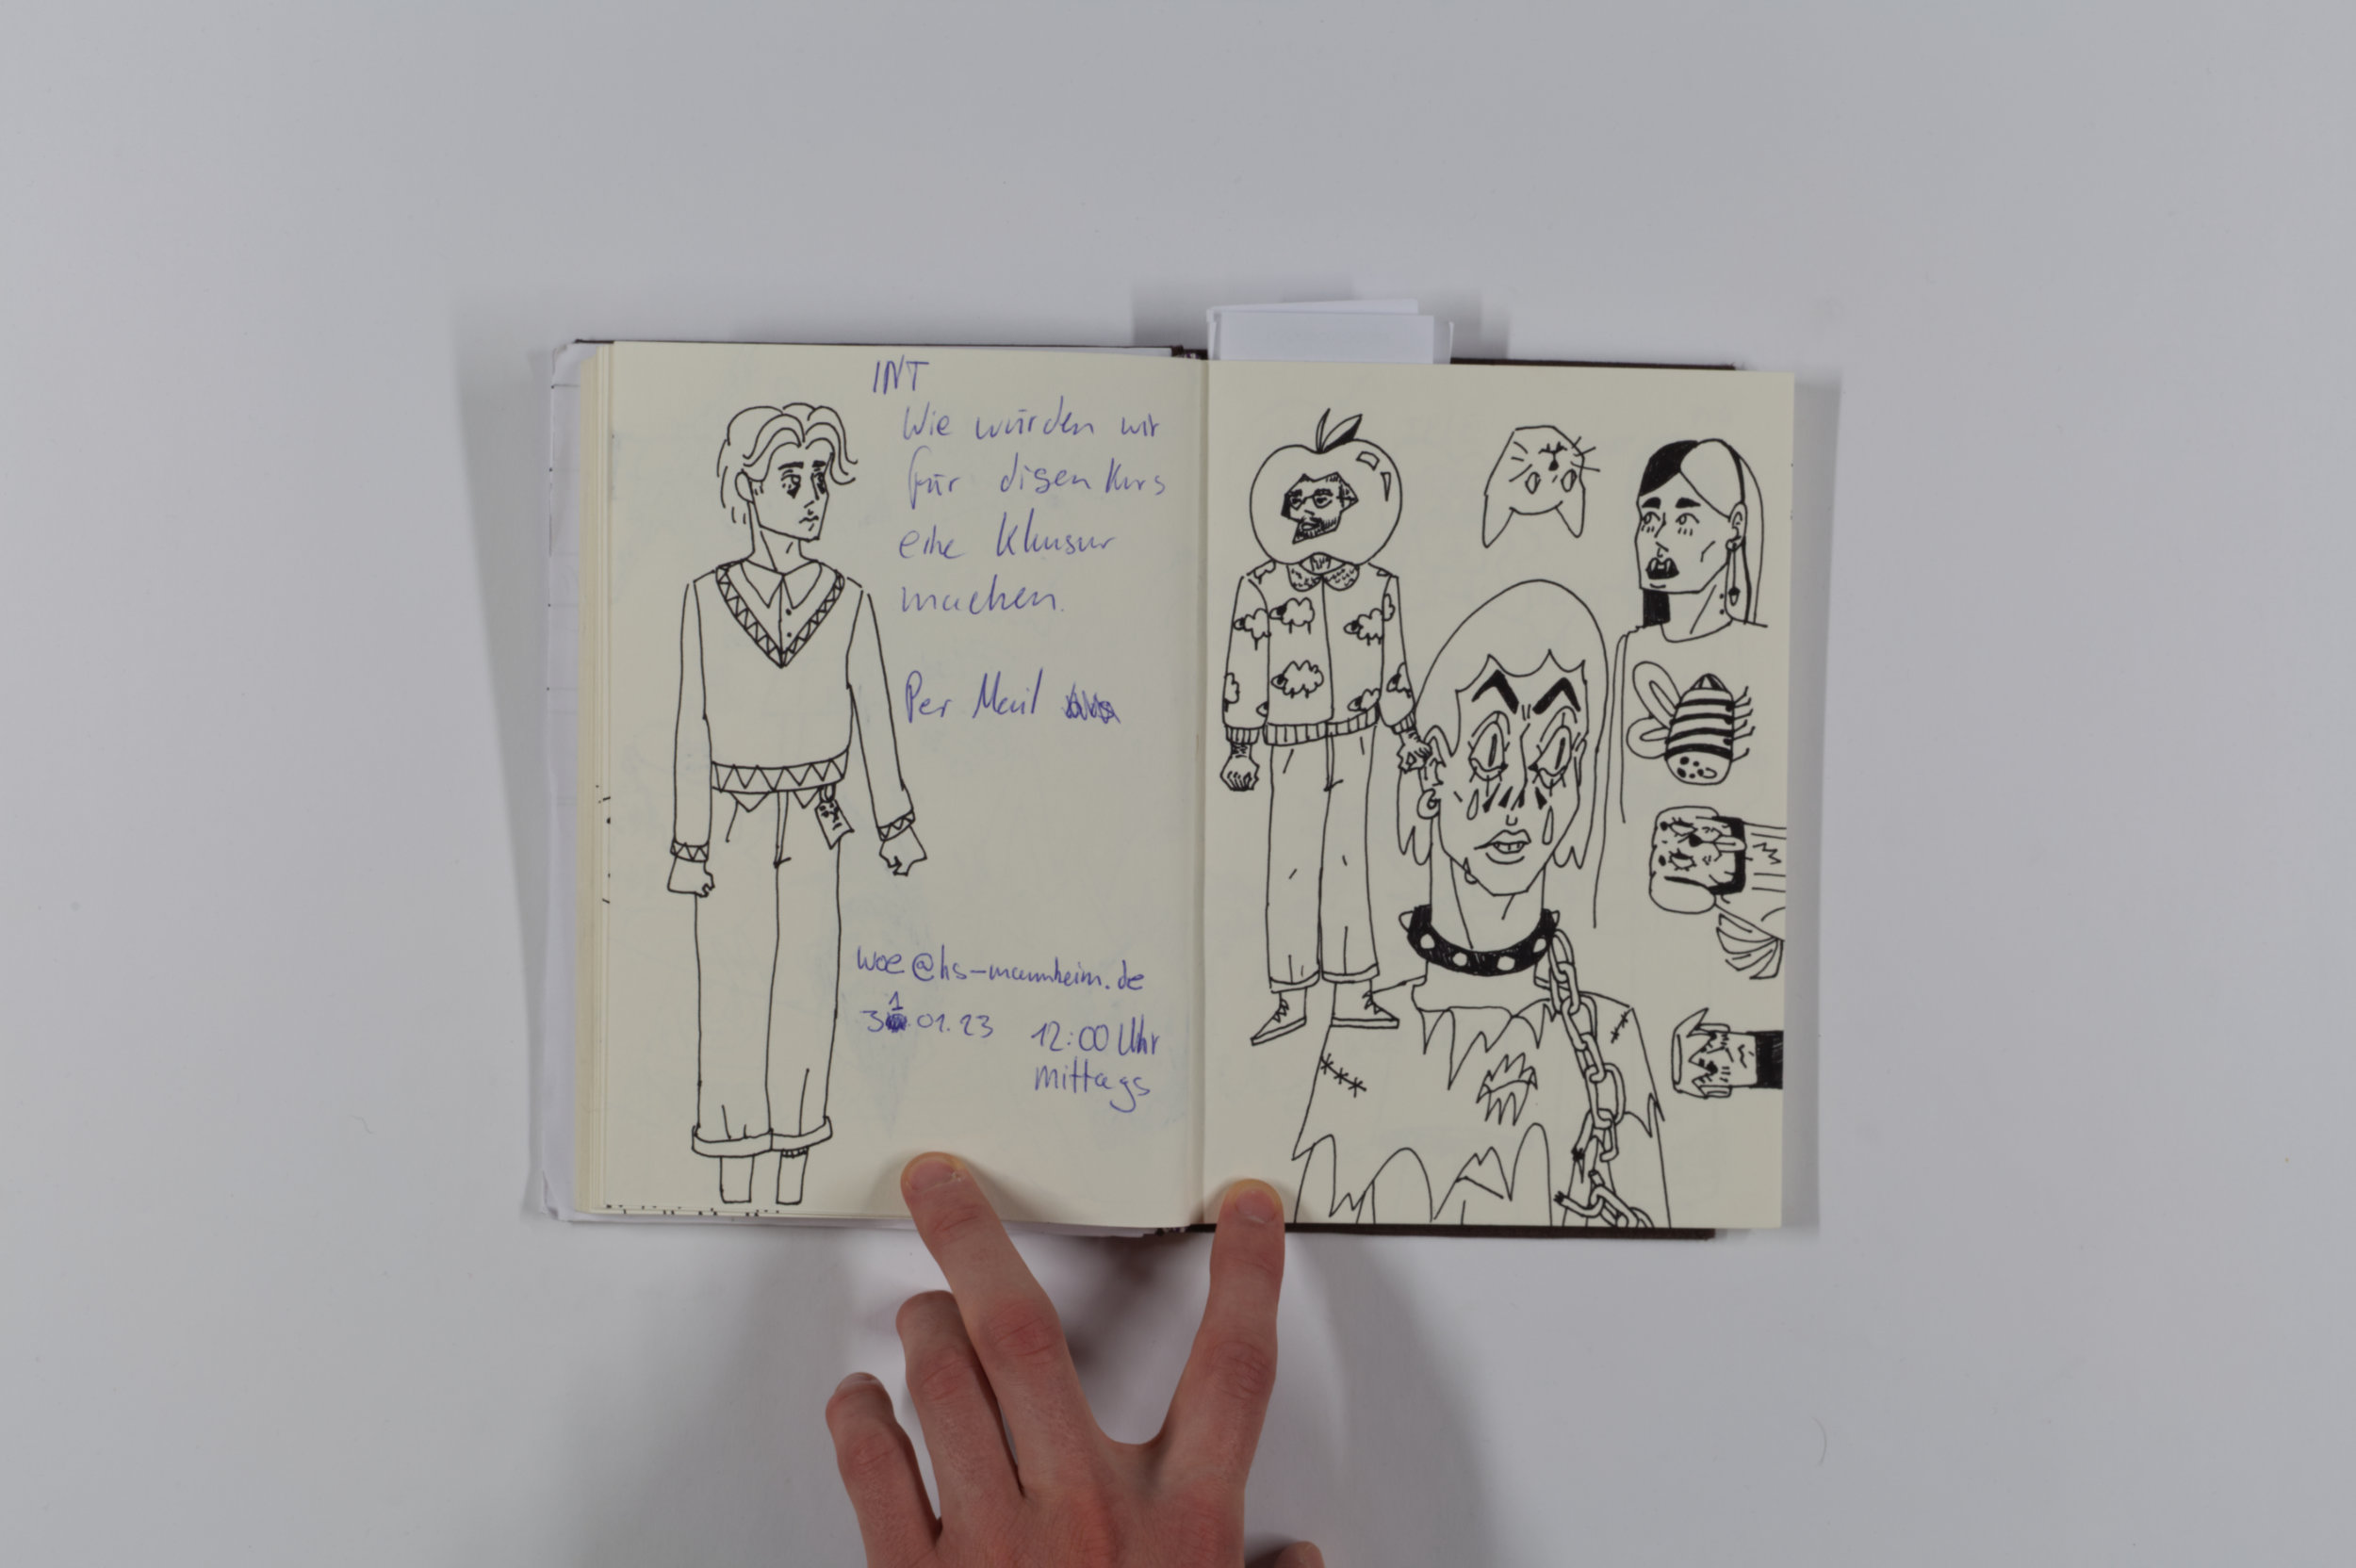 INT
Wie würden wir
für disen Kurs
eine Klausur
machen.
Per Mail
woe@hs-mannheim.de
31.01.23 12:00 Uhr
mittags